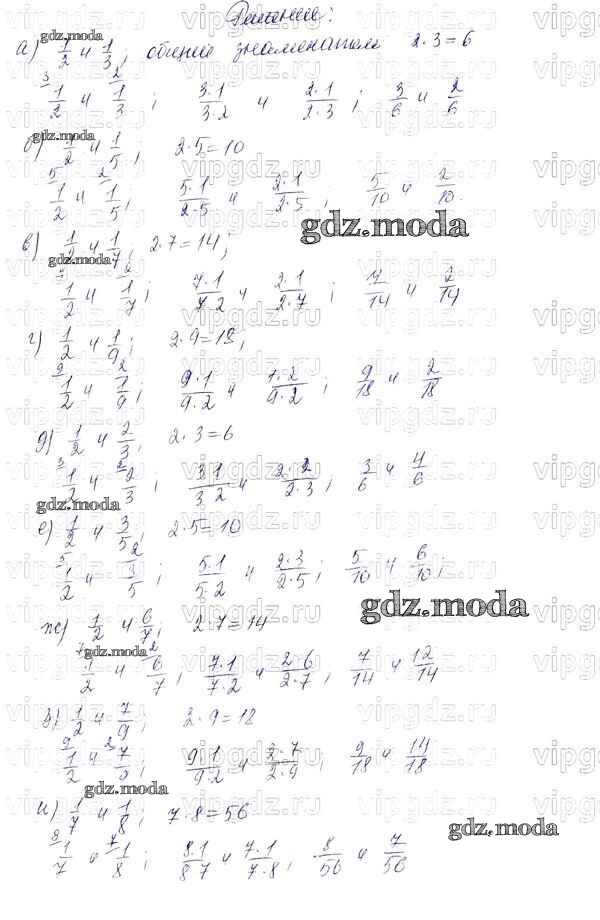 Решение:
а) 1/2 и 1/3; общий знаменатель 2·3=6
3 1/2 и 2 1/3; 3·1/3·2 и 2·1/2·3; 3/6 и 2/6
б) 1/2 и 1/5; 2·5=10
5 1/2 и 2 1/5; 5·1/2·5 и 2·1/2·5; 5/10 и 2/10.
в) 1/2 и 1/7; 2·7=14;
7 1/2 и 2 1/7; 7·1/7·2 и 2·1/2·7; 7/14 и 2/14
г) 1/2 и 1/9; 2·9=18;
9 1/2 и 2 1/9; 9·1/9·2 и 1·2/9·2; 9/18 и 2/18
д) 1/2 и 2/3; 2·3=6
3 1/2 и 2 2/3; 3·1/3·2 и 2·2/2·3; 3/6 и 4/6
е) 1/2 и 3/5; 2·5=10
5 1/2 и 2 3/5; 5·1/5·2 и 2·3/2·5; 5/10 и 6/10;
ж) 1/2 и 6/7; 2·7=14
7 1/2 и 2 6/7; 7·1/7·2 и 2·6/2·7; 7/14 и 12/14
з) 1/2 и 7/9; 2·9=18
9 1/2 и 2 7/9; 9·1/9·2 и 2·7/2·9; 9/18 и 14/18
и) 1/7 и 1/8; 7·8=56
8 1/7 и 7 1/8; 8·1/8·7 и 7·1/7·8; 8/56 и 7/56
gdz.moda
vipgdz.ru